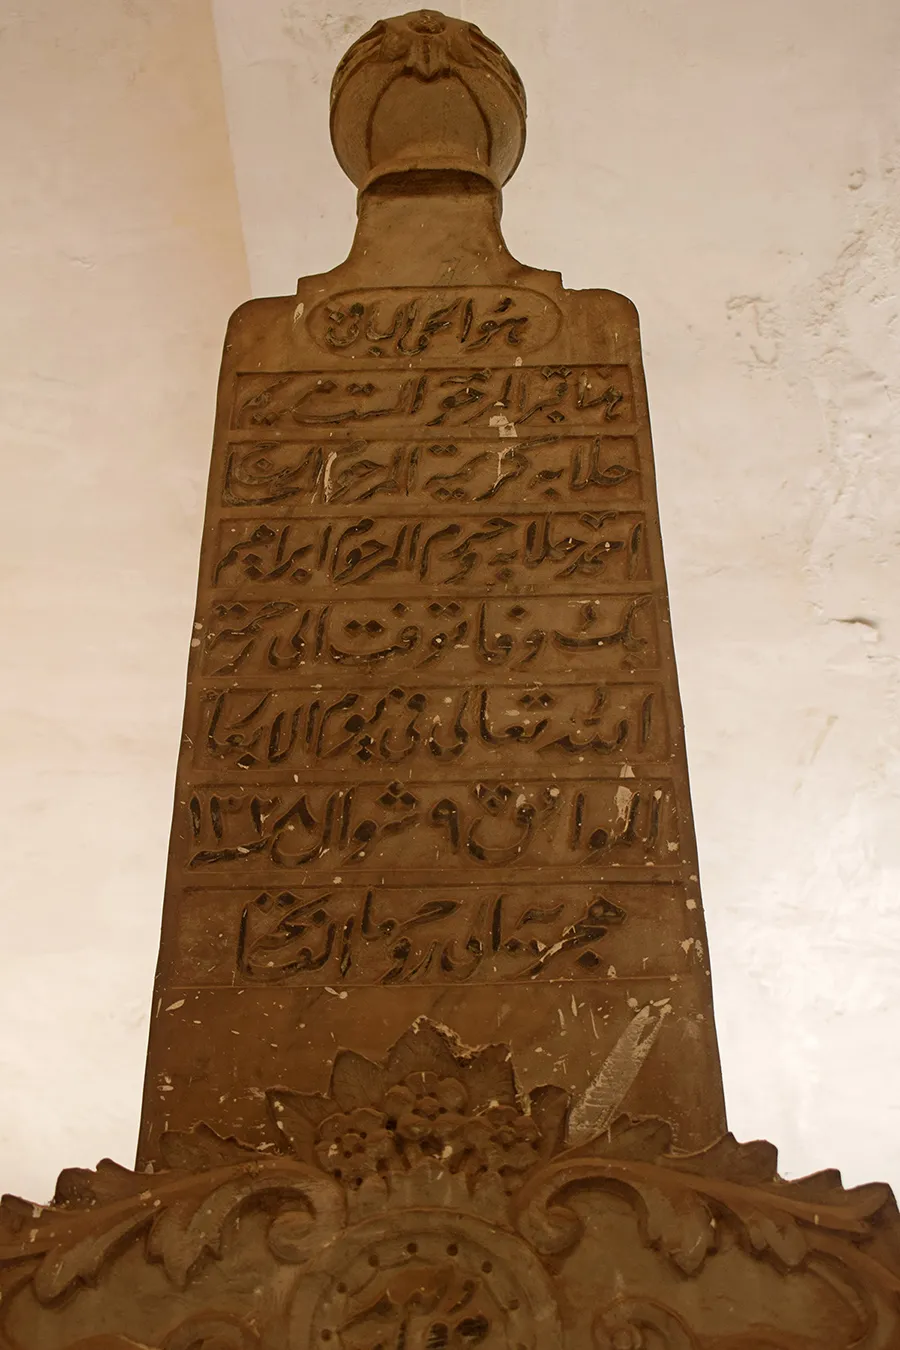 هو الحي الباقي
هذا قبر المرحومة الست مريم
جلابه كريمة المرحوم الشيخ
احمد جلابه حرم المرحوم ابراهيم
بك وفا توفت الى رحمة
الله تعالى في يوم الاربعاء
الموافق ٩ شوال سنة ١٣٢٨
هجريه الى روحها الفاتحة